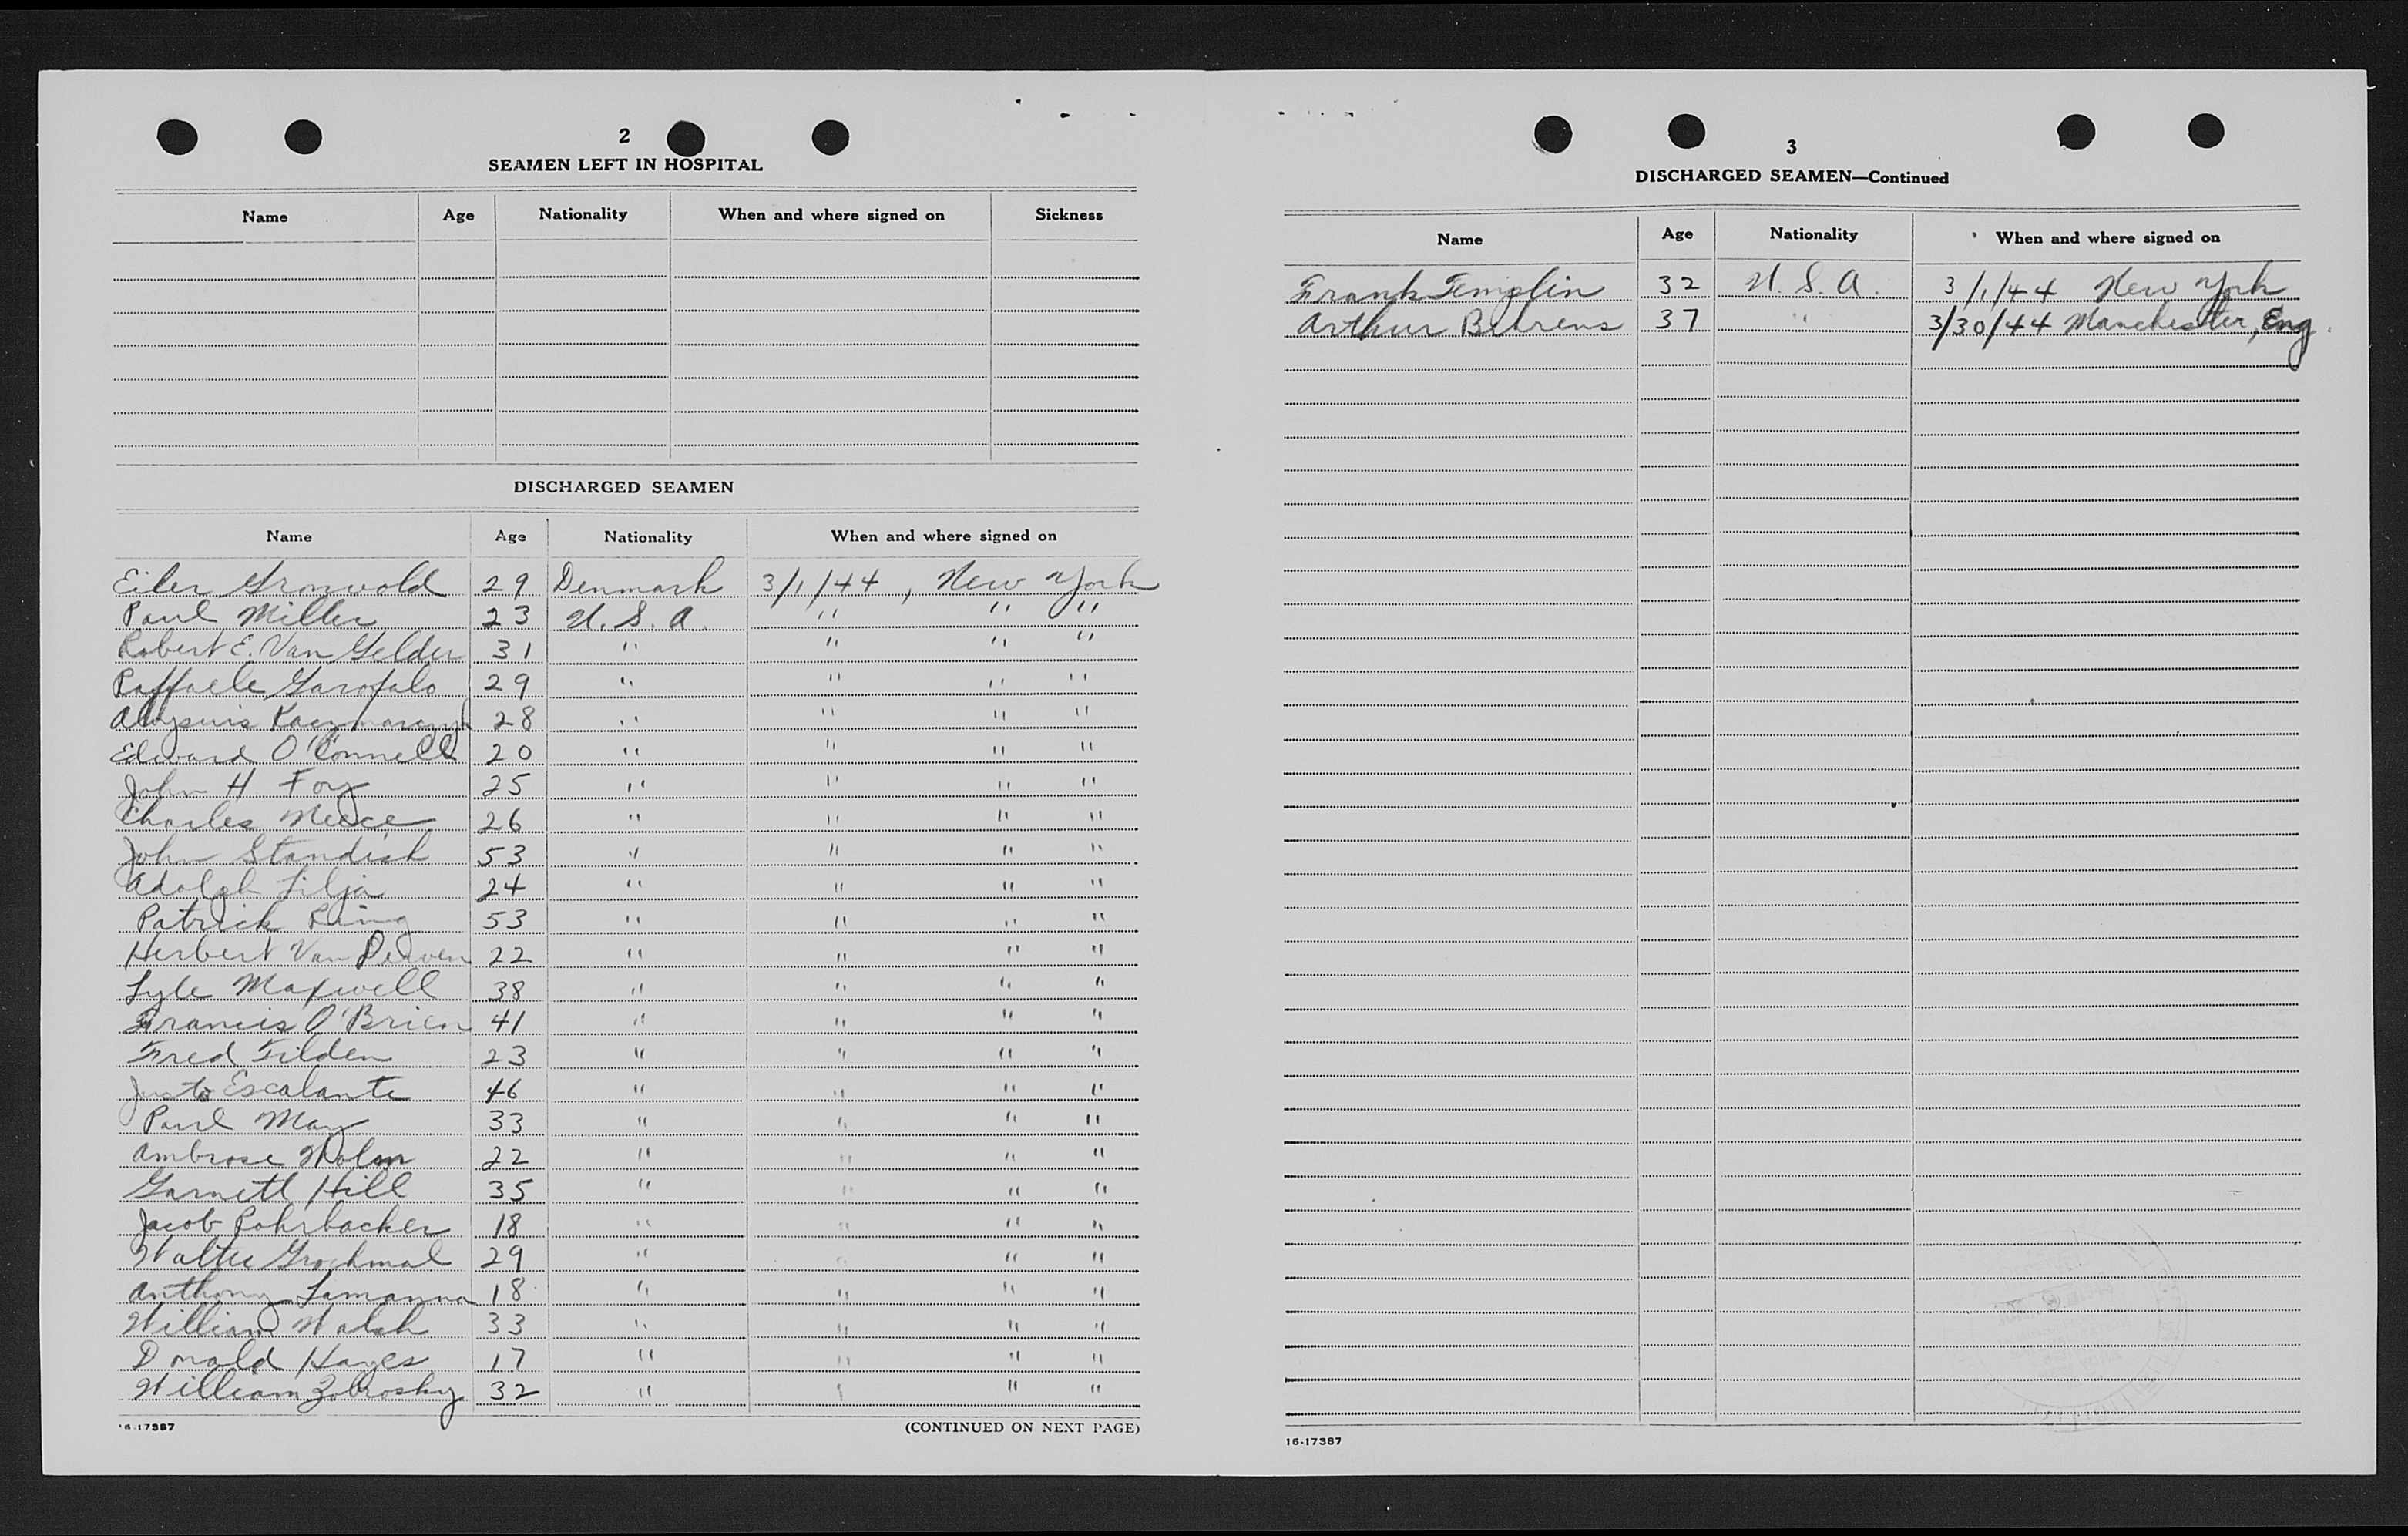 2
SEAMEN LEFT IN HOSPITAL
Name Age Nationality When and where signed on Sickness
DISCHARGED SEAMEN
Name Age Nationality When and where signed on
Eiler Gronvold 29 Denmark 3/1/44, New York
Paul Miller 23 U.S.A. " " "
Robert E. Van Gelder 31 " " " "
Raffaele Garofalo 29 " " " "
Aloysuis Kaczmarczyk 28 " " " "
Edward O'Connell 20 " " " "
John H Foy 25 " " " "
Charles Meece 26 " " " "
John Standish 53 " " " "
Adolph Lilja 24 " " " "
Patrick Ring 53 " " " "
Herbert Van 22 " " " "
Lyle Maxwell 38 " " " "
Francis O'Brien 41 " " " "
Fred Tilden 23 " " " "
Justo Escalante 46 " " " "
Paul May 33 " " " "
Ambrose Nolan 22 " " " "
Garnett Hill 35 " " " "
Jacob Rohrbacker 18 " " " "
Walter Grochmal 29 " " " "
Anthony Lamanna 18 " " " "
William Walsh 33 " " " "
Donald Hayes 17 " " " "
William Zobrosky 32 " " " "
16-17387
(CONTINUED ON NEXT PAGE)
3
DISCHARGED SEAMEN—Continued
Name Age Nationality When and where signed on
Frank Templin 32 U.S.A. 3/1/44 New York
Arthur Behrens 37 " 3/30/44 Manchester, Eng.
16-17387